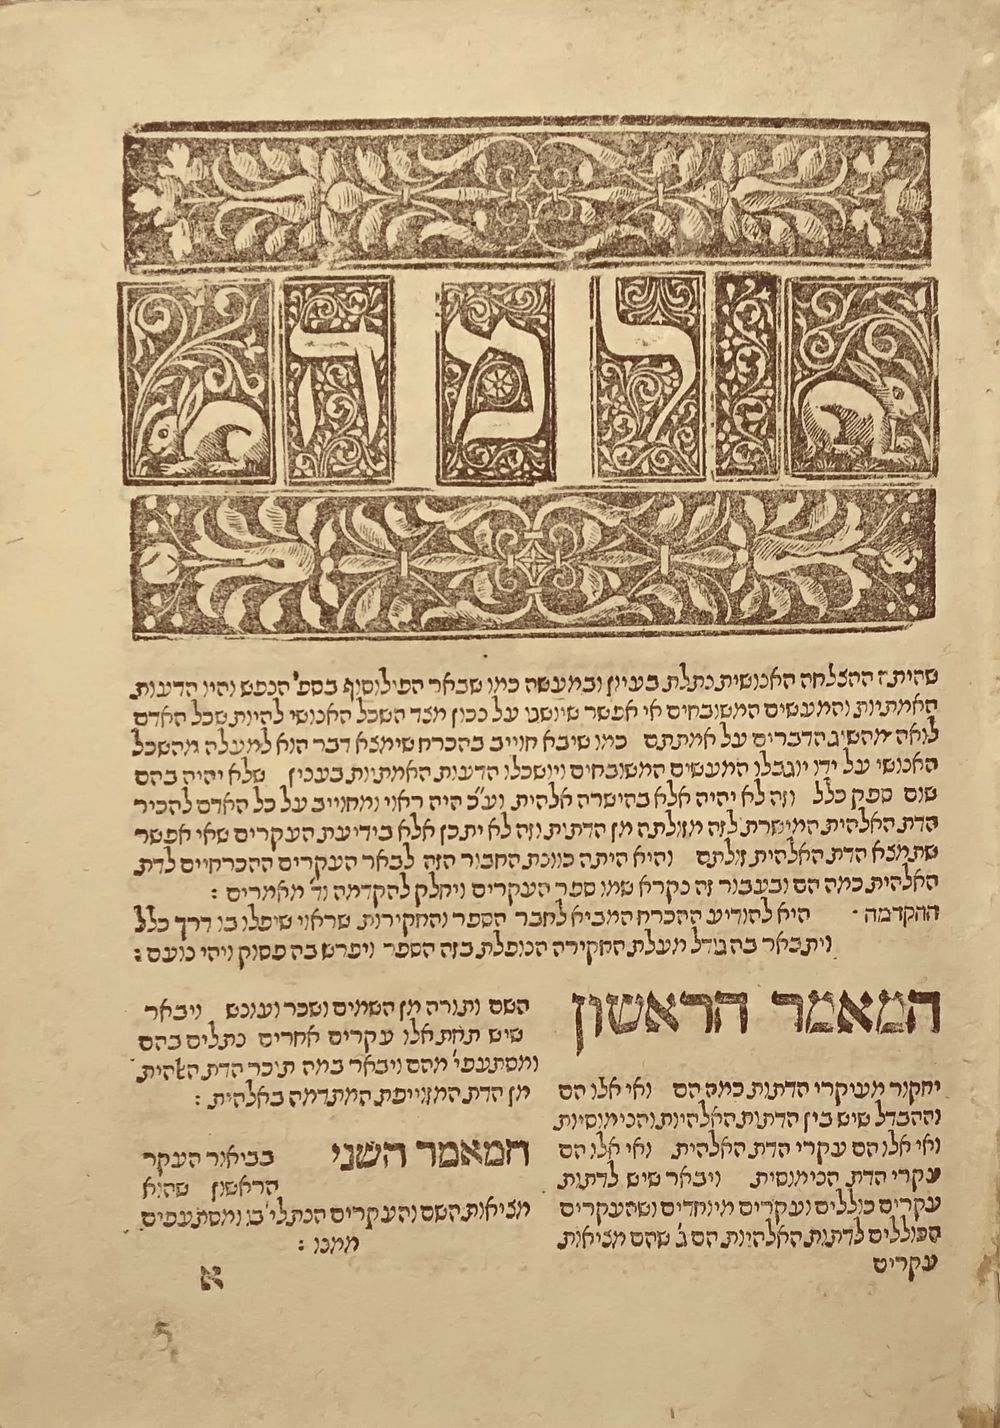 למה
שהיתה ההצלחה האנושית נתלת בעיון ובמעשה כמו שבאר הפילוסוף בספ' הנפש והיו הדעות
האמתיות והמעשים המשובחים אי אפשר שיושגו על נכון מצד השכל האנושי להיות שכל האדם
לואה מהשיג הדברים על אמתתם כמו שיבא חוייב בהכרח שימצא דבר הוא למעלה מהשכל
האנושי על ידו יוגבלו המעשים המשובחים ויושכלו הדעות האמתיות בענין שלא יהיה בהם
שום ספק כלל וזה לא יהיה אלא בהישרה אלהית וע"כ היה ראוי ומחוייב על כל האדם להכיר
הדת האלהית המישרת לזה מזולתה מן הדתות וזה לא יתכן אלא בידיעת העקרים שאי אפשר
שתמצא הדת האלהית זולתם והיא היתה כוונת החבור הזה לבאר העקרים ההכרחיים לדת
האלהית כמה הם ובעבור זה נקרא שמו ספר העקרים ויחלק להקדמה וד' מאמרים :
ההקדמה · היא להודיע ההכרח המביא לחבר הספר והחקירות שראוי שיפלו בו דרך כלל
ויתבאר בה גודל מעלת החקירה הנופלת בזה הספר ויפרש בה פסוק ויהי נועם :
המאמר הראשון
יחקור מעיקרי הדתות כמה הם ואי אלו הם
וההבדל שיש בין הדתות האלהיות והנימוסיות
ואי אלו הם עקרי הדת האלהית ואי אלו הם
עקרי הדת הנימוסית ויבאר שיש לדתות
עקרים כוללים ועקרים מיוחדים ושהעקרים
הכוללים לדתות האלהיות הם ג' שהם מציאות
עקרים
השם ותורה מן השמים ושכר ועונש ויבאר
שיש תחת אלו עקרים אחרים נתלים בהם
ומסתעפי' מהם ויבאר במה תוכר הדת האלהית
מן הדת המזוייפת המתדמה באלהית :
המאמר השני בביאור העקר
הראשון שהוא
מציאות השם והעקרים הנתלי' בו ומסתעפים
ממנו :
א
5